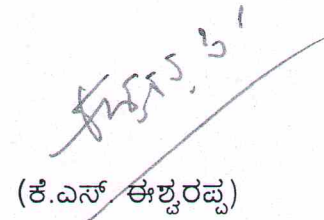 (ಕೆ.ಎಸ್. ಈಶ್ವರಪ್ಪ)